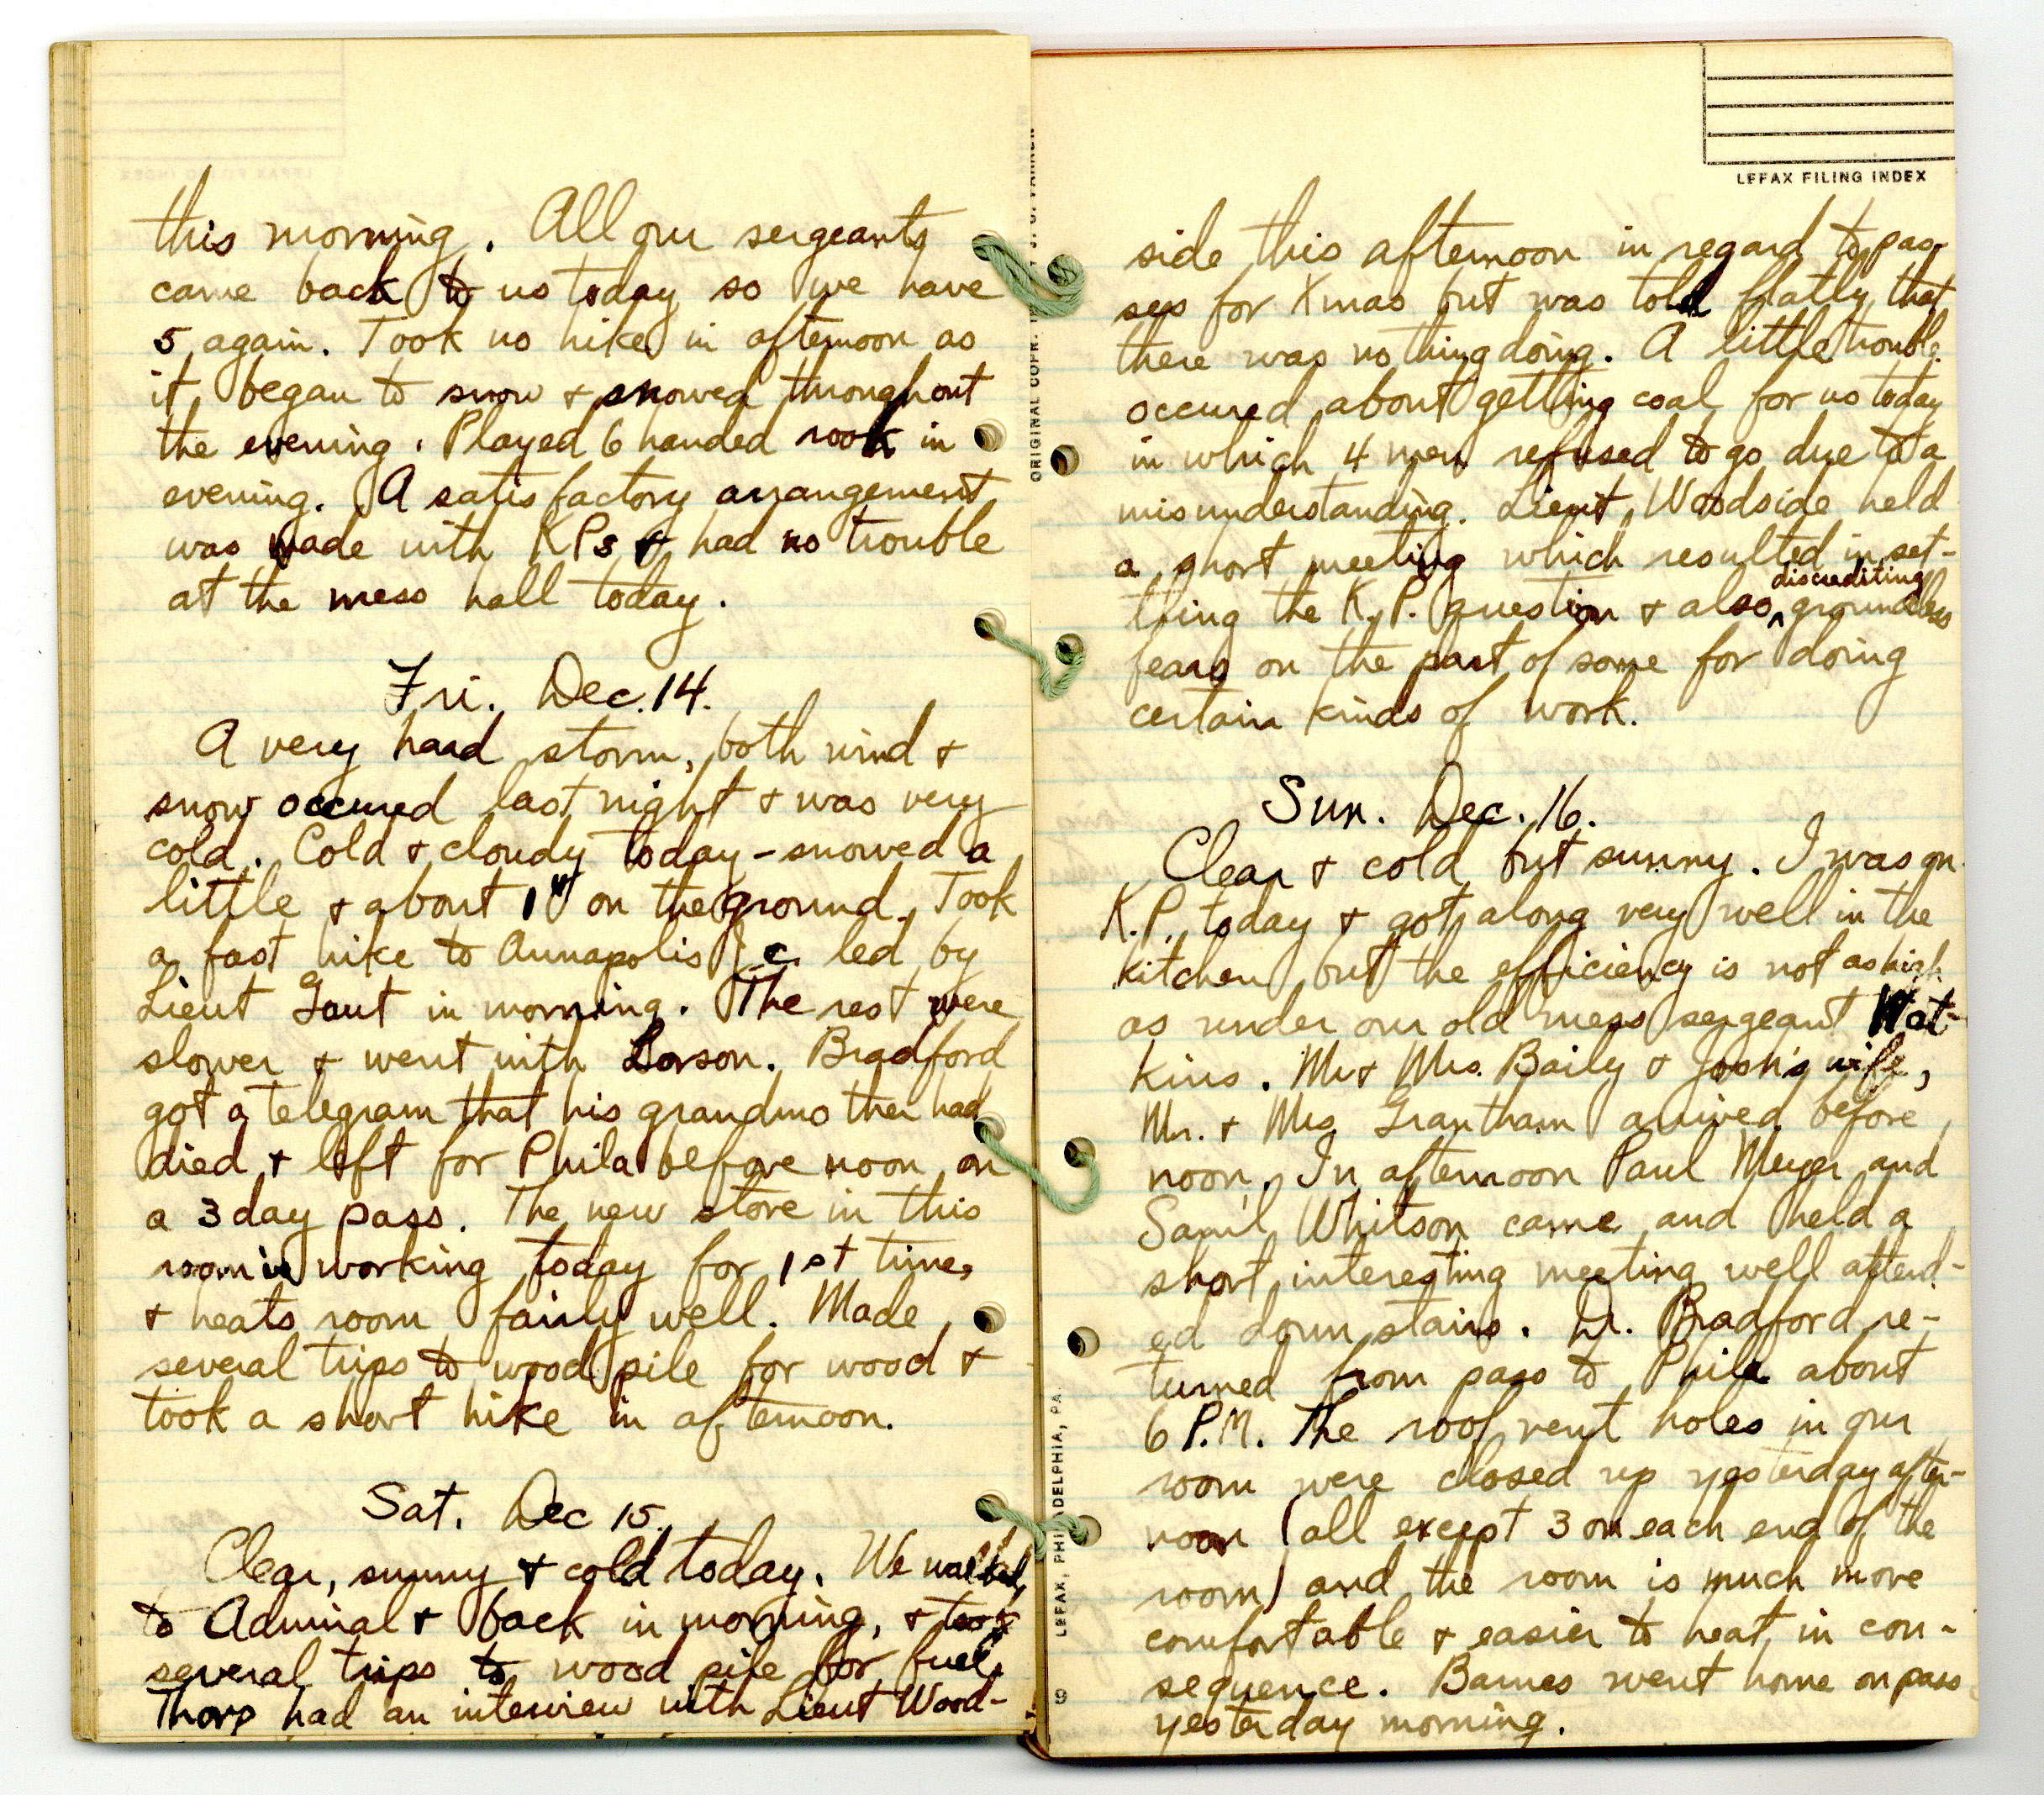 this morning. All our sergeants
came back to us today so we have
5 again. Took no hike in afternoon as
it began to snow & snowed throughout
the evening. Played 6 handed rook in
evening. A satisfactory arrangement
was made with KPs & had no trouble
at the mess hall today.
Fri. Dec. 14.
A very hard storm, both wind &
snow occured last night & was very
cold. Cold & cloudy today - snowed a
little & about 1" on the ground. Took
a fast hike to Annapolis J.c. led by
Lieut Gaut in morning. The rest were
slower & went with Lorson. Bradford
got a telegram that his grandmother had
died & left for Phila before noon on
a 3 day pass. The new stove in this
room is working today for 1st time,
& heats room fairly well. Made
several trips to wood pile for wood &
took a short hike in afternoon.
Sat. Dec 15.
Clear, sunny & cold today. We walked
to Admiral & back in morning, & took
several trips to wood pile for fuel.
Thorp had an interview with Lieut Wood-
LEFAX FILING INDEX
side this afternoon in regard to pas-
ses for Xmas but was told flatly that
there was nothing doing. A little trouble
occured about getting coal for us today
in which 4 men refused to go due to a
misunderstanding. Lieut. Woodside held
a short meeting which resulted in set-
tling the K.P. question & also ^ discrediting groundless
fears on the part of some for doing
certain kinds of work.
Sun. Dec. 16.
Clear & cold but sunny. I was on
K.P. today & got along very well in the
kitchen but the efficiency is not as high
as under our old mess sergeant Wat-
kins. Mr & Mrs. Baily & Josh's wife,
Mr. & Mrs. Grantham arrived before
noon. In afternoon Paul Meyer and
Sam'l Whitson came and held a
short interesting meeting well attend-
ed down stairs. Dr. Bradford re-
turned from pass to Phila about
6 P.M. The roof vent holes in our
room were closed up yesterday after-
noon (all except 3 on each end of the
room) and the room is much more
comfortable & easier to heat in con-
sequence. Barnes went home on pass
yesterday morning.
ORIGINAL COPR.
LEFAX, PHILADELPHIA, PA.